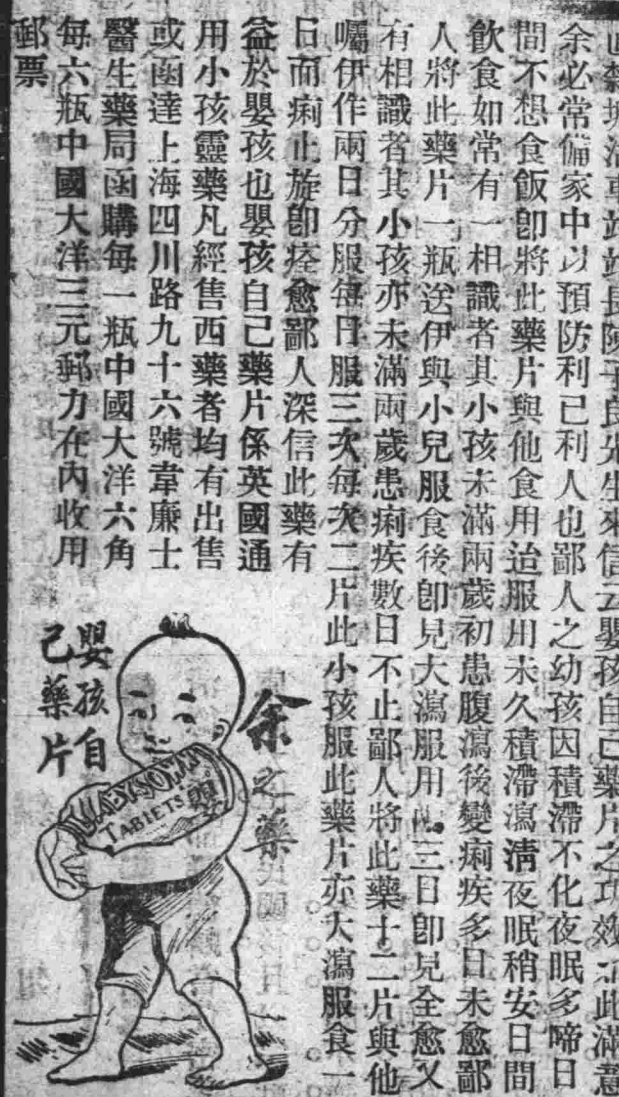 站長陳子良先生來信云嬰孩自己藥片之功效
余必常備家中以預防利己利人也鄙人之幼孩因積滯不化夜眠多啼日
間不想食飯卽將此藥片與他食用迨服用未久積滯瀉淸夜眠稍安日間
飲食如常有一相識者其小孩未滿兩歲初患腹瀉後變痢疾多日未愈鄙
人將此藥片一瓶送伊與小兒服食後卽見大瀉服用三日卽見全愈又
有相識者其小孩亦未滿兩歲患痢疾數日不止鄙人將此藥十二片與他
囑伊作兩日分服每日服三次每次二片此小孩服此藥片亦大瀉服食一
日而痢止旋卽痊愈鄙人深信此藥有
益於嬰孩也嬰孩自己藥片係英國通
用小孩靈藥凡經售西藥者均有出售
或函達上海四川路九十六號韋廉士
醫生藥局函購每一瓶中國大洋六角
每六瓶中國大洋三元郵力在內收用
郵票
余之藥
BABYSOWN
TABLETS
嬰孩自
己藥片